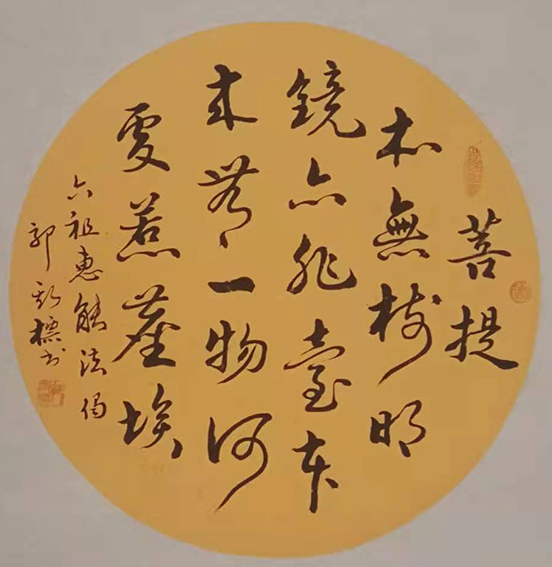 菩提
本無樹明
鏡亦非臺本
來無一物何
處惹塵埃
六祖惠能法偈
郭標书